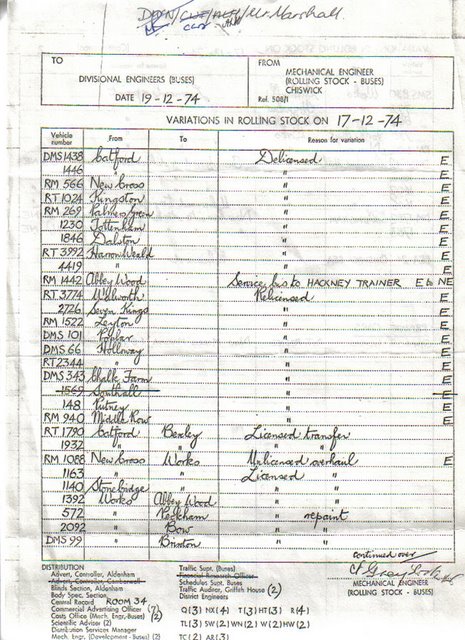 Mr Marshall.
TO
DIVISIONAL ENGINEERS (BUSES)
DATE 19-12-74
FROM
MECHANICAL ENGINEER
(ROLLING STOCK - BUSES)
CHISWICK
Ref. 508/1
VARIATIONS IN ROLLING STOCK ON 17-12-74
Vehicle number From To Reason for variation
DMS 1438 Catford Delicensed E
1446 " " E
RM 566 New Cross " E
RT 1024 Kingston " E
RM 269 Palmers Green " E
1230 Tottenham " E
1846 Dalston " E
RT 3992 Harrow Weald " E
4419 " " E
RM 1442 Abbey Wood Service bus to HACKNEY TRAINER E to NE
RT 3774 Walworth Relicensed E
2726 Seven Kings " E
RM 1522 Leyton " E
DMS 101 Poplar " E
DMS 66 Holloway " E
RT 2344 " E
DMS 343 Chalk Farm " E
1569 Southall " E
148 Putney " E
RM 940 Middle Row " E
RT 1790 Catford Bexley Licensed transfer
1932 " " " "
RM 1088 New Cross Works Unlicensed overhaul E
1163 " " Licensed "
1140 Stonebridge " " "
1392 Works Abbey Wood " "
572 " Peckham " repaint
2092 " Bow " "
DMS 99 " Brixton " "
continued over
MECHANICAL ENGINEER
(ROLLING STOCK - BUSES)
DISTRIBUTION
Advert. Controller, Aldenham
Advert. Controller, Camberwell
Blinds Section, Aldenham
Body Spec. Section,
Central Record ROOM 34
Commercial Advertising Officer (7)
Costs Office (Mech. Engr-Buses) (2)
Scientific Adviser (2)
Distribution Services Manager
Mech. Engr. (Development - Buses) (2)
Traffic Supt. (Buses)
Financial Research Officer
Schedules Supt. Buses
Traffic Auditor, Griffith House (2)
District Engineers
Q (3) NX (4) T (3) HT (3) R (4)
TL (3) SW (2) WN (2) W (2) HW (2)
TC (2) AR (3)